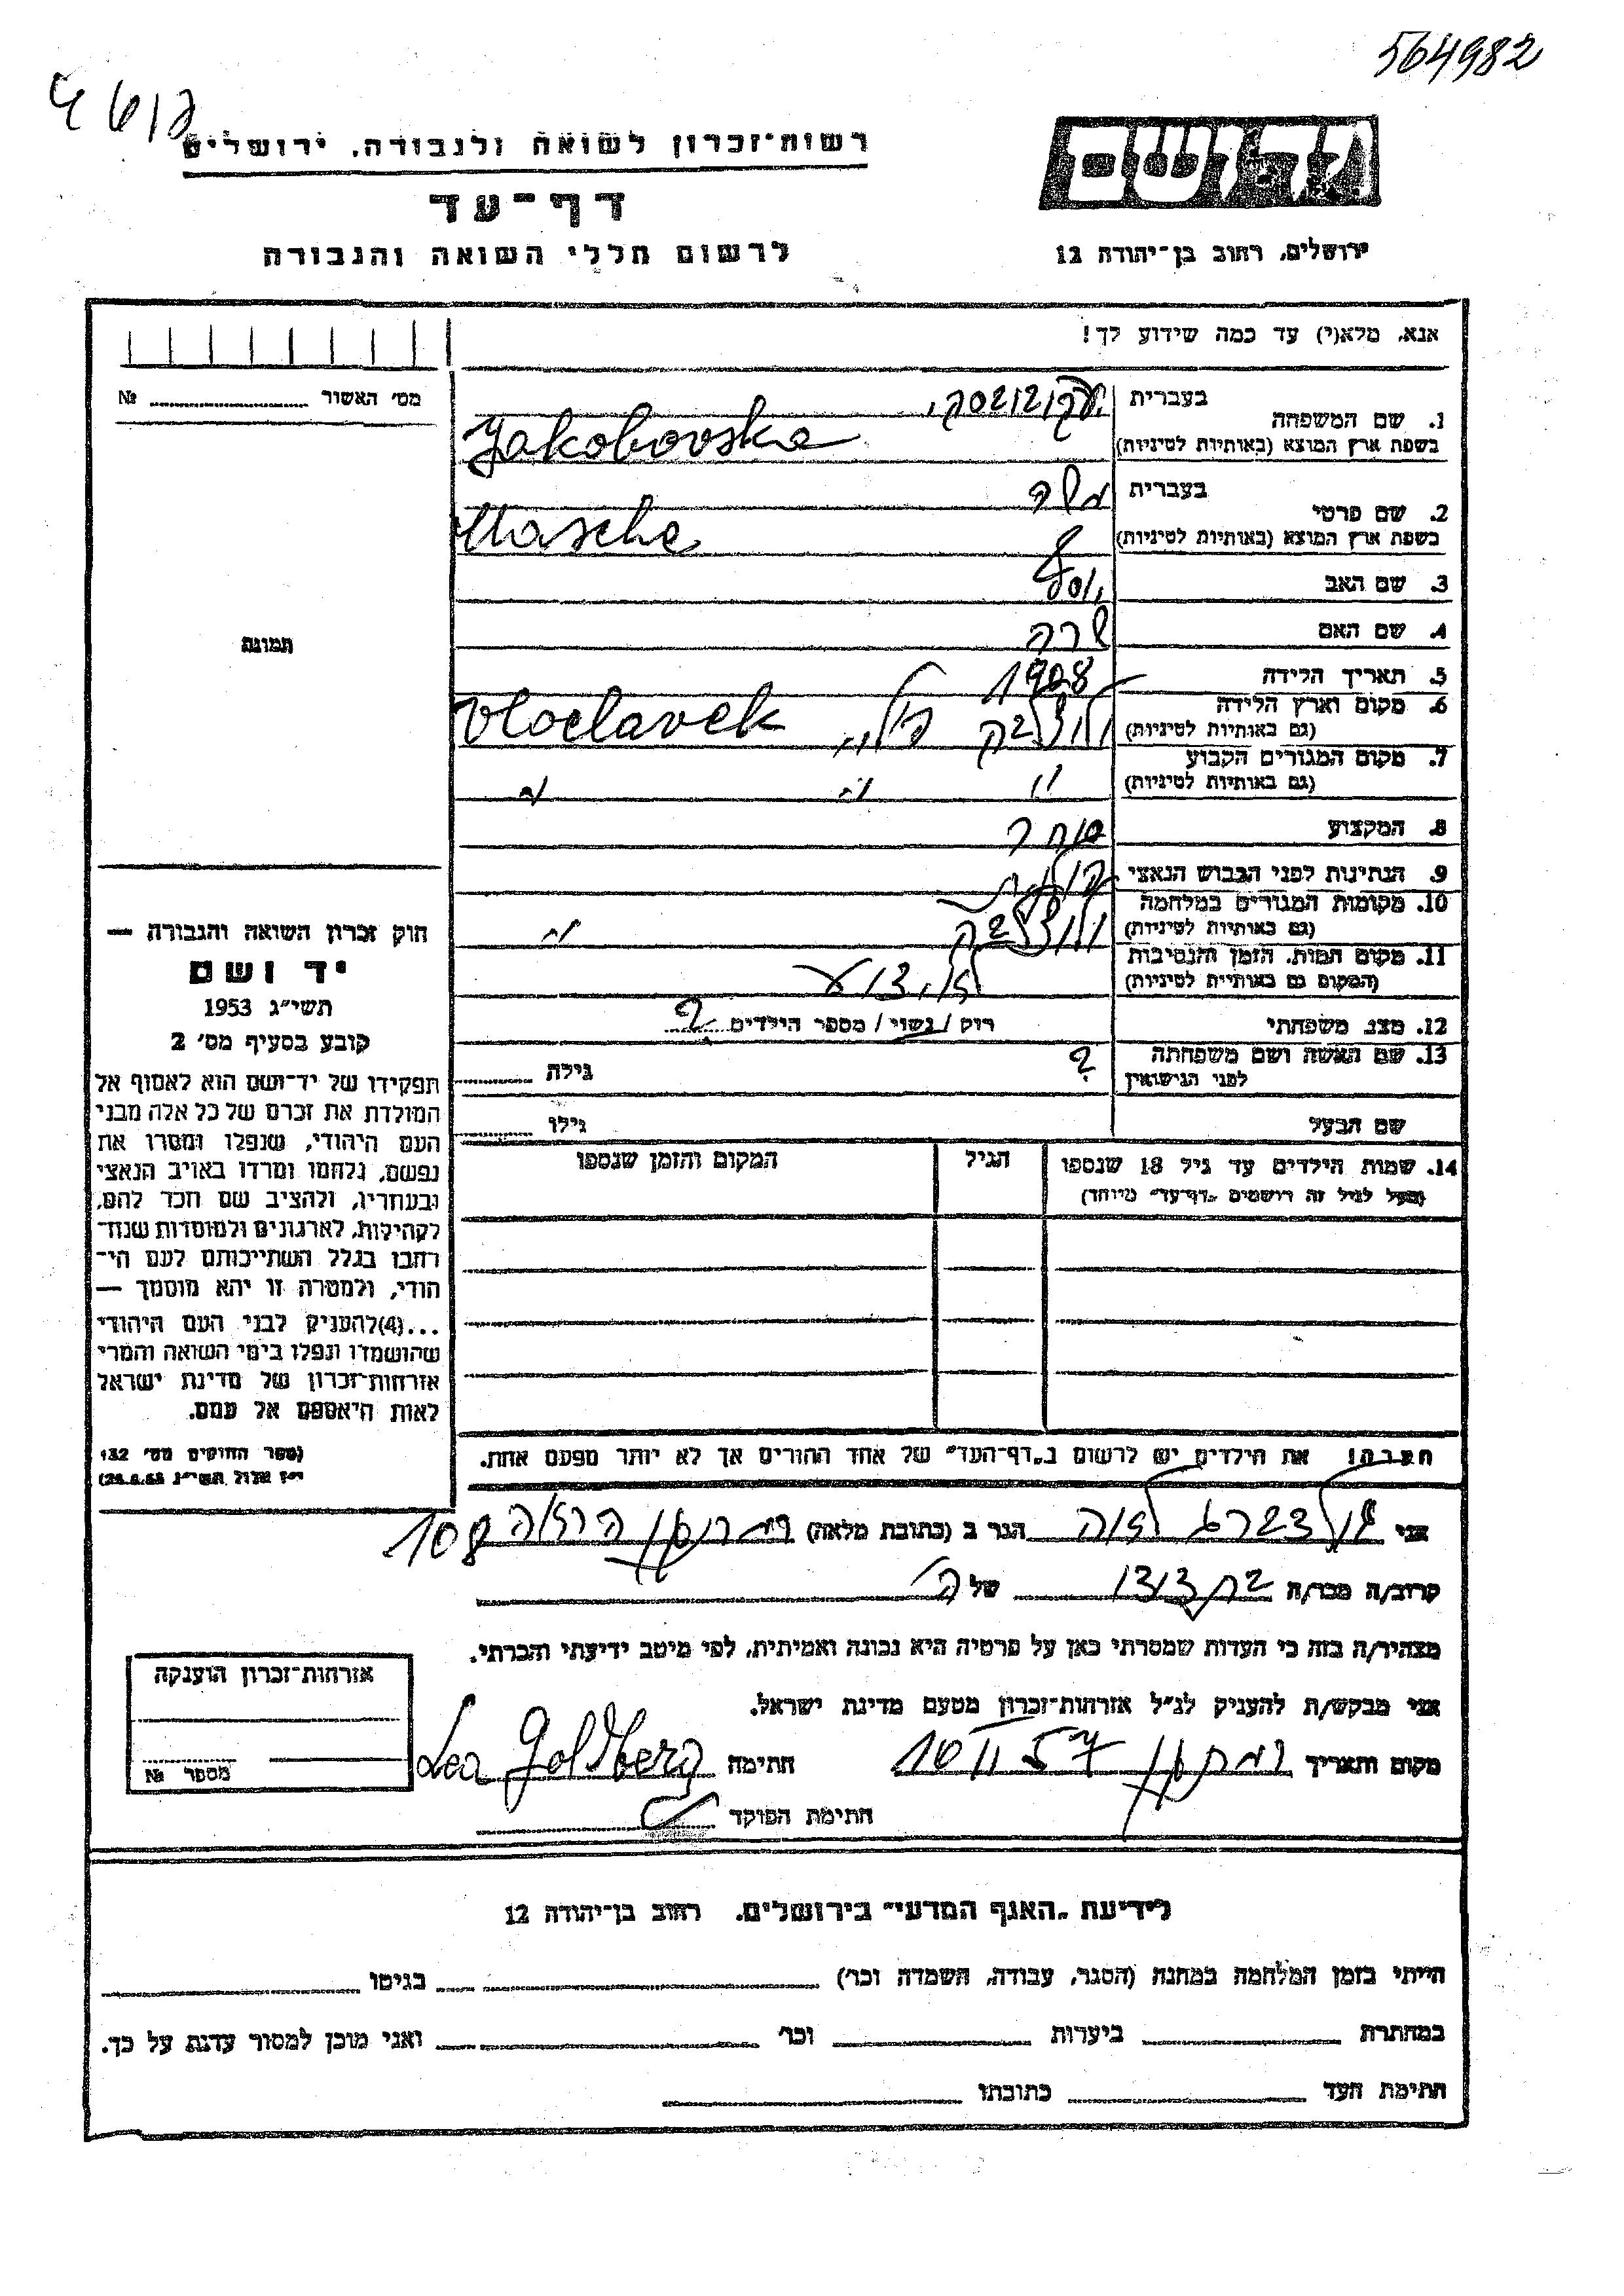 564982
רשות־זכרון לשואה ולגבורה, ירושלים
דף־עד
לרשום חללי השואה והגבורה
ירושלים, רחוב בן־יהודה 12
אנא, מלא(י) עד כמה שידוע לך!
מס׳ האשור № 
1. שם המשפחה בעברית יעקובובסקי
בשפת ארץ המוצא (באותיות לטיניות) Jakobovska
2. שם פרטי בעברית משה
בשפת ארץ המוצא (באותיות לטיניות) Masche
3. שם האב יוסף
4. שם האם שרה
5. תאריך הלידה 1908
6. מקום וארץ הלידה ולוצלבק פולין Vloclavek
(גם באותיות לטיניות)
7. מקום המגורים הקבוע " " "
(גם באותיות לטיניות)
8. המקצוע סוחר
9. הנתינות לפני הכבוש הנאצי פולנית
10. מקומות המגורים במלחמה ולוצלבק "
(גם באותיות לטיניות)
11. מקום המות, הזמן והנסיבות לא ידוע
(המקום גם באותיות לטיניות)
12. מצב משפחתי רוק / נשוי / מספר הילדים ?
13. שם האשה ושם משפחתה ? גילה
לפני הנישואין
שם הבעל גילו
14. שמות הילדים עד גיל 18 שנספו הגיל המקום והזמן שנספו
(מעל לגיל זה רושמים „דף־עד״ מיוחד)
תמונה
חוק זכרון השואה והגבורה —
יד ושם
תשי״ג 1953
קובע בסעיף מס׳ 2
תפקידו של יד־ושם הוא לאסוף אל
המולדת את זכרם של כל אלה מבני
העם היהודי, שנפלו ומסרו את
נפשם, נלחמו ומרדו באויב הנאצי
ובעוזריו, ולהציב שם וזכר להם,
לקהילות, לארגונים ולמוסדות שנח־
רבו בגלל השתייכותם לעם הי־
הודי, ולמטרה זו יהא מוסמך —
...(4)להעניק לבני העם היהודי
שהושמדו ונפלו בימי השואה והמרי
אזרחות־זכרון של מדינת ישראל
לאות היאספם אל עמם.
(ספר החוקים מס׳ 132
הערה! את הילדים יש לרשום ב„דף־העד״ של אחד ההורים אך לא יותר מפעם אחת.
אני גולדברג לאה הגר ב (כתובת מלאה) רמת גן הרואה 108
קרוב/ה מכר/ה בת דודו של
מצהיר/ה בזה כי העדות שמסרתי כאן על פרטיה היא נכונה ואמיתית, לפי מיטב ידיעתי והכרתי.
אני מבקש/ת להעניק לנ״ל אזרחות־זכרון מטעם מדינת ישראל.
מקום ותאריך רמת גן 10 II 57 חתימה Lea Goldberg
חתימת הפוקד
אזרחות־זכרון הוענקה
מספר №
לידיעת „האגף המדעי״ בירושלים, רחוב בן־יהודה 12
הייתי בזמן המלחמה במחנה (הסגר, עבודה, השמדה וכו׳) בגיטו
במחתרת ביערות וכו׳ ואני מוכן למסור עדות על כך.
חתימת העד כתובתו